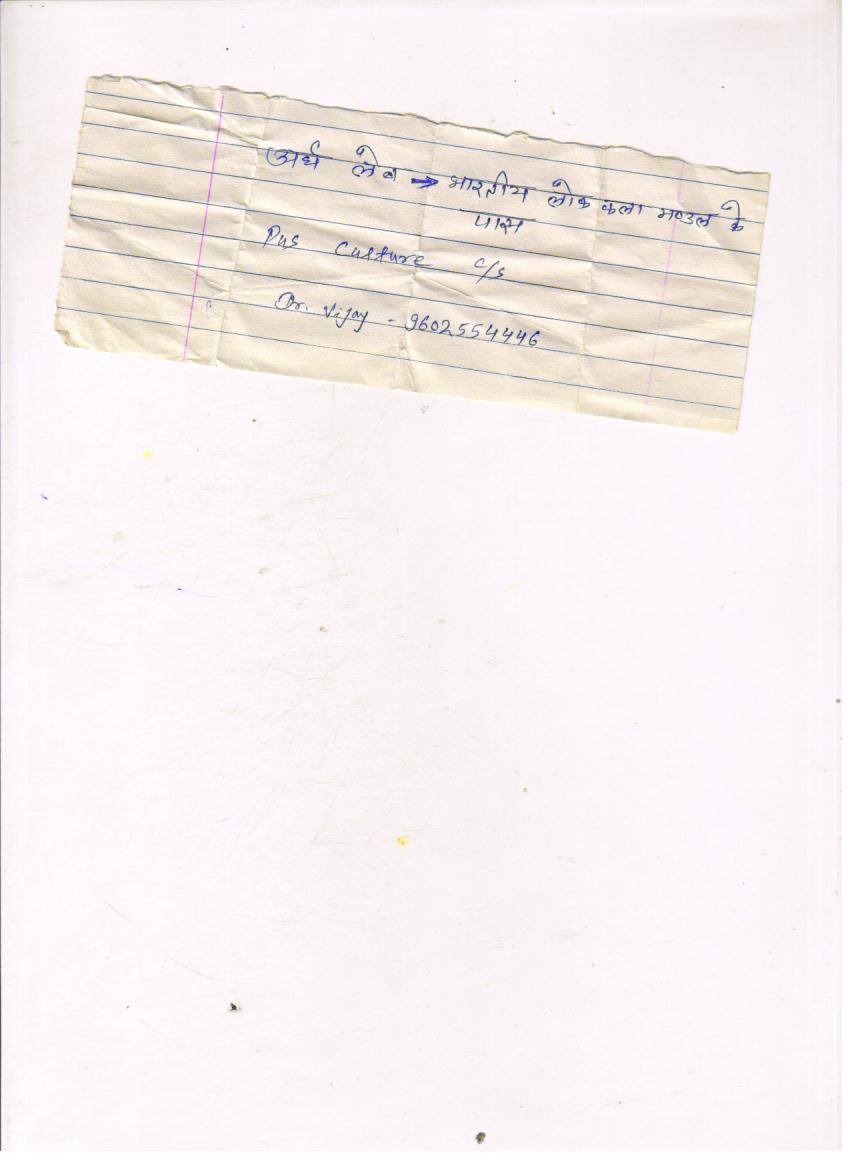 अर्थ लेब → भारतीय लोक कला मण्डल के
पास
Pus Culture c/s
Dr. Vijay - 9602554446